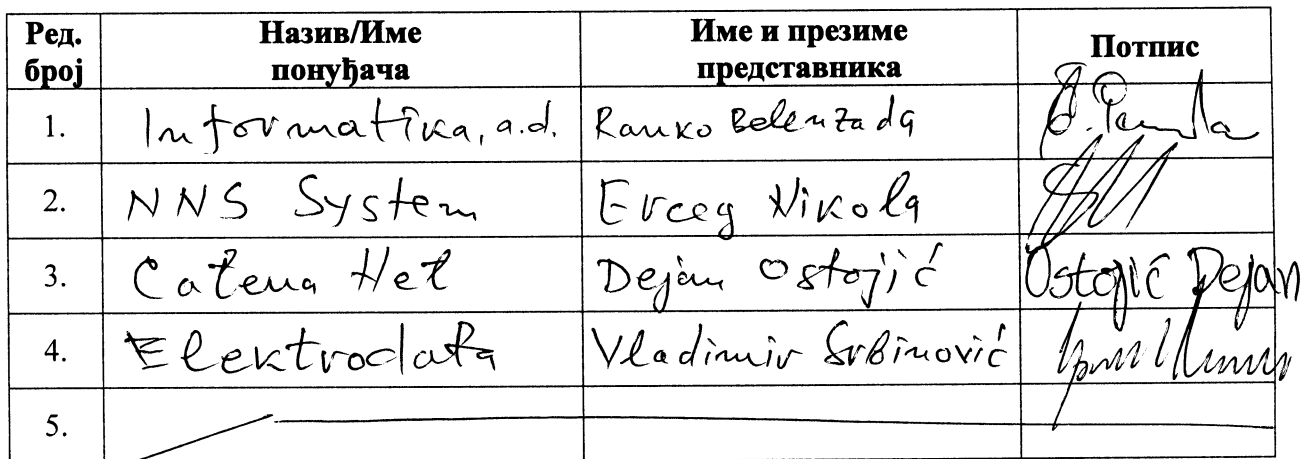 Ред. број Назив/Име понуђача Име и презиме представника Потпис
1. Informatika, a.d. Ranko Belenzada
2. NNS System Erceg Nikola
3. Catena Net Dejan Ostojić Ostojić Dejan
4. Elektrodata Vladimir Srbinović
5.